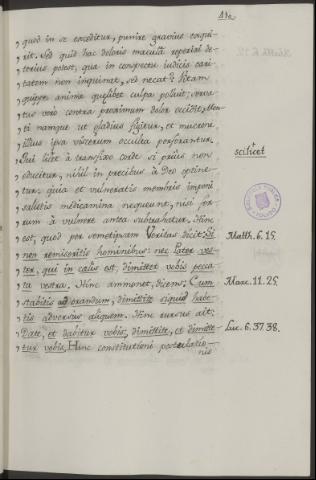 quod in se exceditur, punire gravius exqui-
rit. Sed quid hac doloris macula reperiri de-
terius potest, qua in conspectu iudicis cari-
tatem non inquinat, sed necat? Vitam
quippe animæ quælibet culpa polluit, serva-
tus vero contra proximum dolor occidit, Men-
ti namque ut gladius figitur, et mucrone
illius ipsa viscerum occulta perforantur.
Qui scit.t a transfixo corde si prius non
educitur, nihil in precibus a Deo optine-
tur: quia et vulneratis membris imponi
salutis medicamina nequeunt, nisi fer-
rum a vulnere antea subtrahatur. Hinc
est, quod per semetipsam Veritas dicit: Si
non remiseritis hominibus: nec Pater ves-
ter, qui in cælis est, dimittet vobis pecca-
ta vestra. Hinc ammonet, dicens: Cum
stabitis ad orandum, dimittite siquid habe-
tis adversus aliquem. Hinc rursus ait:
Date, et dabitur vobis; dimittite, et dimitte-
tur vobis. Hinc constitutioni postulatio-
nis
scilicet
Matth. 6. 15.
Marc. 11. 25.
Luc. 6. 37. 38.